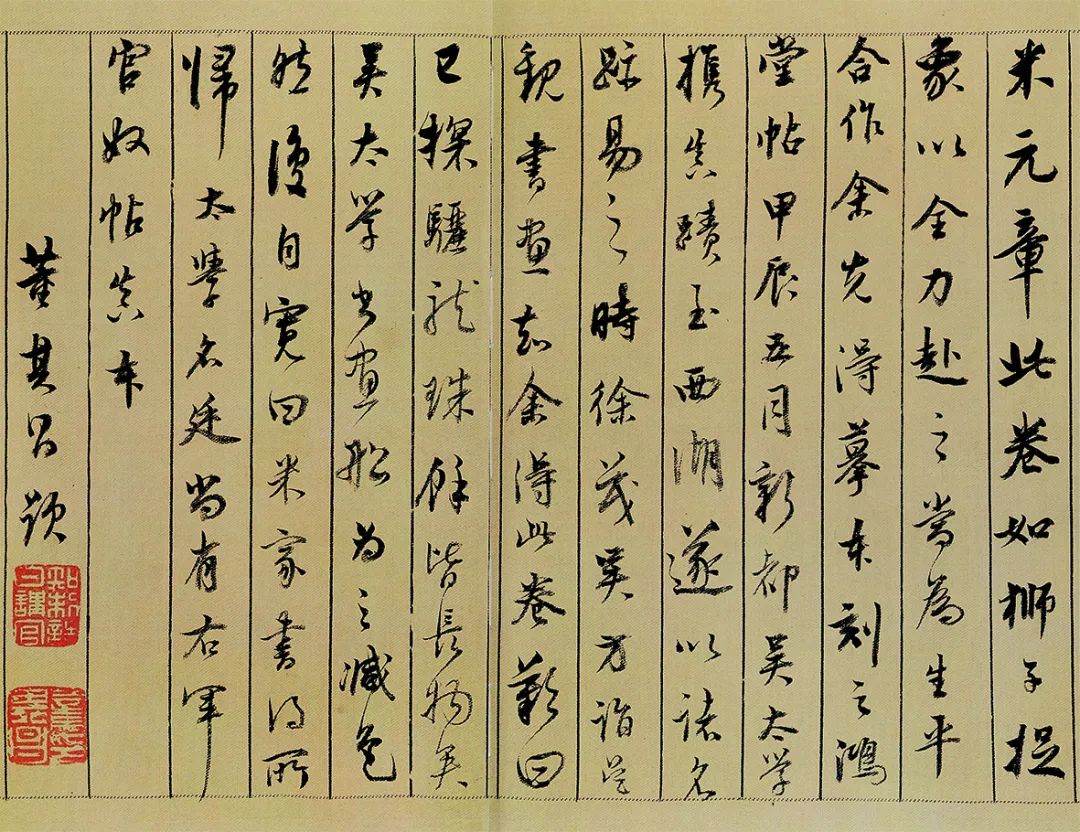 米元章此卷如獅子捉
象以全力赴之當為生平
合作余先得摹本刻之鴻
堂帖甲辰五月新都吳太學
携真蹟至西湖遂以諸名
跡易之時徐茂吳方詣吳
觀書畫知余得此卷歎曰
已探驪龍珠餘皆長物矣
吳太學書畫船為之減色
然後自寬曰米家書得所
歸太學名廷尚有右軍
官奴帖真本
董其昌題
知制誥日講官
董其昌印